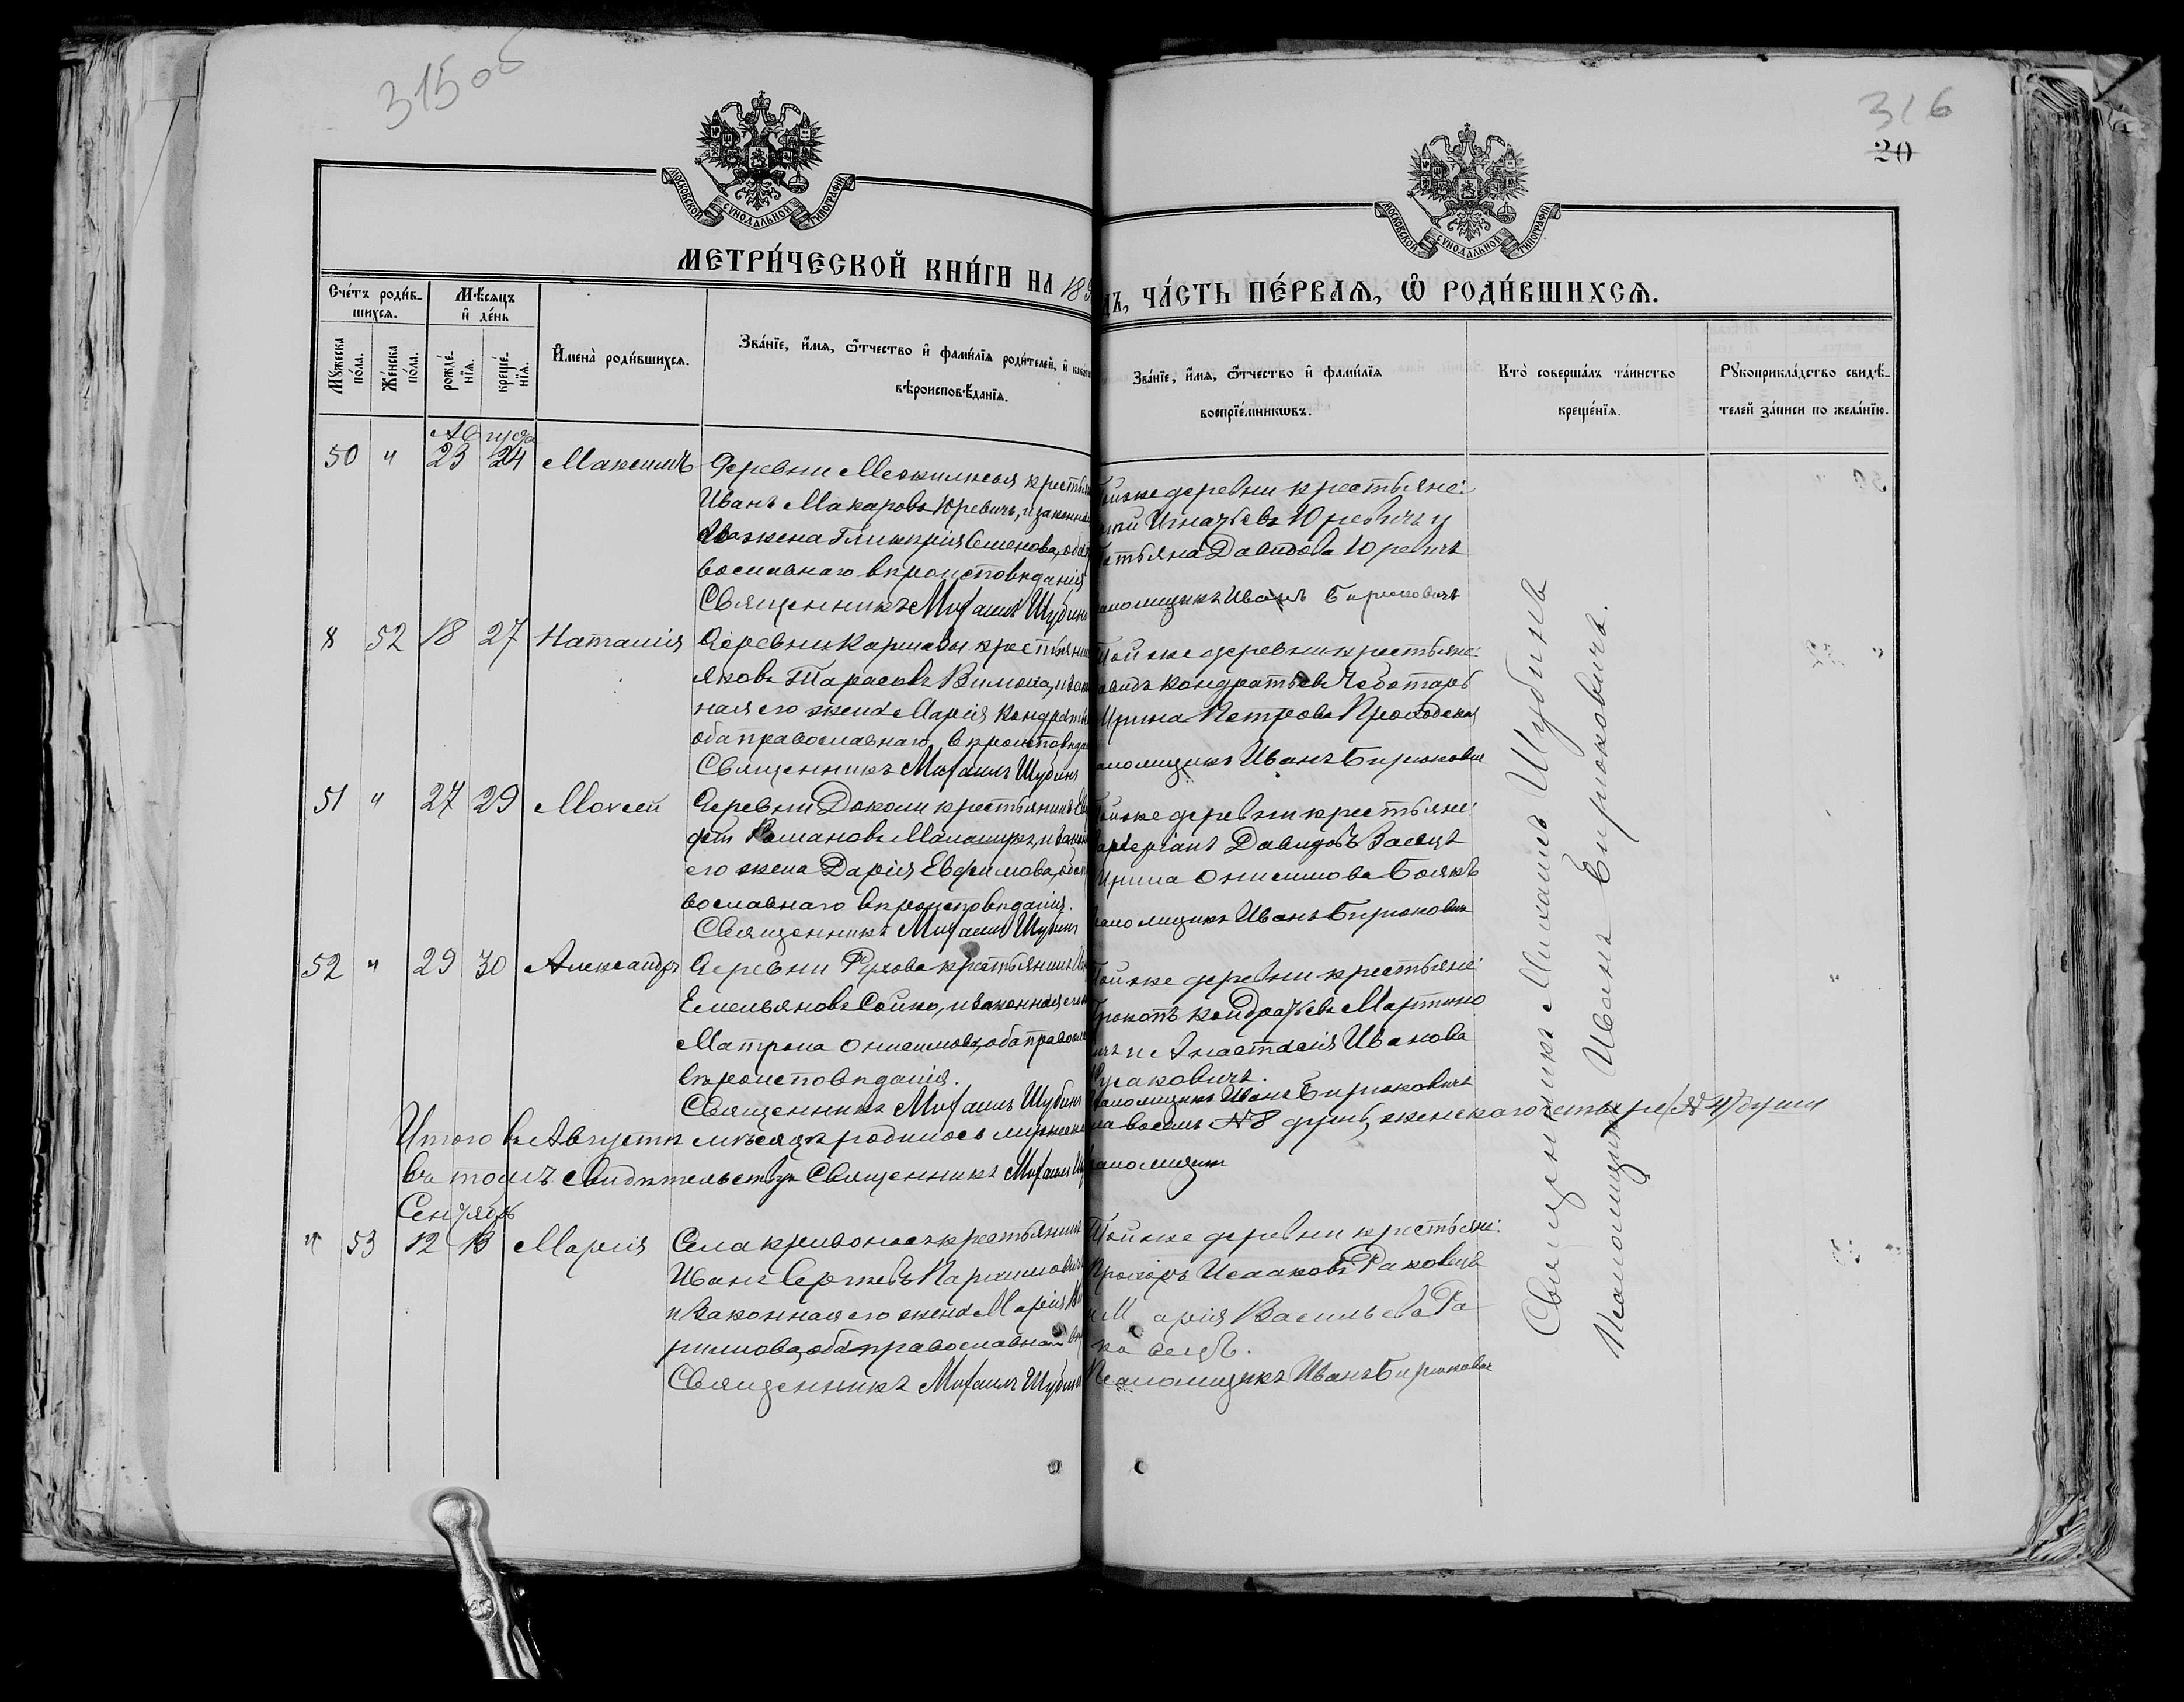 315 об
316
20
МОСКОВСКОЙ СѴНОДАЛЬНОЙ ТИПОГРАФІИ
МОСКОВСКОЙ СѴНОДАЛЬНОЙ ТИПОГРАФІИ
МЕТРИ́ЧЕСКОЙ КНИ́ГИ НА 189
ДЪ, ЧА́СТЬ ПЕ́РВАѦ, Ѡ҆ РОДИ́ВШИХСѦ.
Сче́тъ роди́в-
шихсѧ.
Мѣ́сѧцъ
и҆ де́нь
Мꙋ́жеска по́ла.
Же́нска по́ла.
рожде́-нїѧ.
креще́-нїѧ.
И҆мена̀ роди́вшихсѧ.
Зва́нїе, и҆́мѧ, ѻ҆́тчество и҆ фами́лїѧ роди́телей, и҆
вѣроисповѣ́данїѧ.
Зва́нїе, и҆́мѧ, ѻ҆́тчество и҆ фами́лїѧ
воспрїе́мникѡвъ.
Кто̀ соверша́лъ та́инство
креще́нїѧ.
Рꙋкоприкла́дство свидѣ́-
телей за́писи по жела́нїю.
Августа
50 " 23 24 Максимъ
Деревни крестьян
Иванъ Макаровъ Юревичъ, и законная
его жена Гликерія Семенова, оба пра
вославнаго вѣроисповѣданія
Священникъ Михаилъ Шубинъ
Тойже деревни крестьяне:
Игнатьевъ Юревичъ и
Татьяна Давидова Юревичъ
Псаломщикъ Иванъ Бирюковичъ
8 52 18 27 Наталія
Деревни Каршевы крестьянинъ
Яковъ Тарасовъ и закон
ная его жена Марія Кондратьева
оба православнаго вѣроисповѣда
Священникъ Михаилъ Шубинъ
Той же деревни крестьяне:
Давидъ Кондратьевъ Чеботарь
Ирина Петрова
Псаломщикъ Иванъ Бирюкович
51 " 27 29 Моѵсей
Деревни Доколи крестьянинъ
Романовъ и законная
его жена Дарія Евфимова, оба пра
вославнаго вѣроисповѣданія.
Священникъ Михаилъ Шубинъ
Тойже деревни крестьяне:
Давидовъ Заецъ
Ирина Онисимова Боякъ
Псаломщикъ Иванъ Бирюкович
52 " 29 30 Александръ
Деревни Рухова крестьянинъ
Емельяновъ Сойко, и законная его
Матрона Онисимова, оба правосл
вѣроисповѣданія.
Священникъ Михаилъ Шубинъ
Той же деревни крестьяне:
Прокопъ Кондратьевъ Мартино
вичъ и Анастасія Иванова
Русаковичъ.
Псаломщикъ Иванъ Бирюковичъ
Итого въ Августѣ мѣсяцѣ родилось мужеска пола восемь № 8 душъ, женскаго четыре (№ 4) души
въ томъ свидѣтельствуемъ Священникъ Михаилъ Шу
Псаломщикъ
Сентябрь
" 53 12 13 Марія
Села Кривоносъ крестьянинъ
Иванъ Сергѣевъ Пархимовичъ
и законная его жена Марія
оба православнаго вѣ
Священникъ Михаилъ Шубинъ
Той же деревни крестьяне:
Прохоръ Исааковъ Раковецъ
и Марія Васильева Ра
ковецъ.
Псаломщикъ Иванъ Бирюкович
Священникъ Михаилъ Шубинъ
Псаломщикъ Иванъ Бирюковичъ.